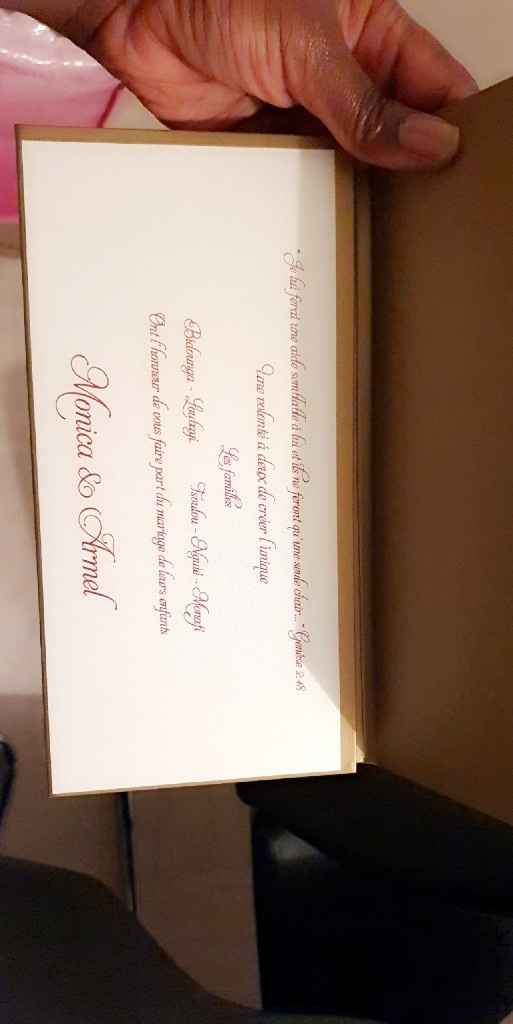 " Je lui ferai une aide semblable à lui et ils ne feront qu'une seule chair... " Genèse 2:18
Une volonté à deux de créer l'unique
Les familles
Bidounga - Loubayi Tsoulou - Nguié -
Ont l'honneur de vous faire part du mariage de leurs enfants
Monica & Armel